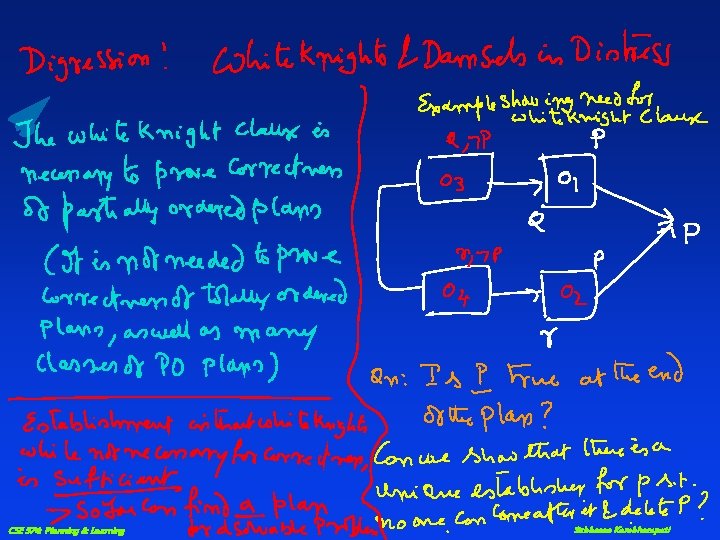 Digression! White Knights & Damsels in Distress
The white Knight Clause is
necessary to prove Correctness
of partially ordered plans
(It is not needed to prove
correctness of totally ordered
plans, as well as many
classes of PO plans)
Establishment without white Knights
while not necessary for correctness,
is sufficient
→ So far can find a plan
for a solvable problem
Example showing need for
white Knight Clause
Q,¬P
P
O3
O1
Q
P
r,¬P
P
O4
O2
r
Qn: Is P true at the end
of the plan?
Can we show that there is a
unique establisher for p s.t.
no one can come after it & delete P?
CSE 574: Planning & Learning
Subbarao Kambhampati